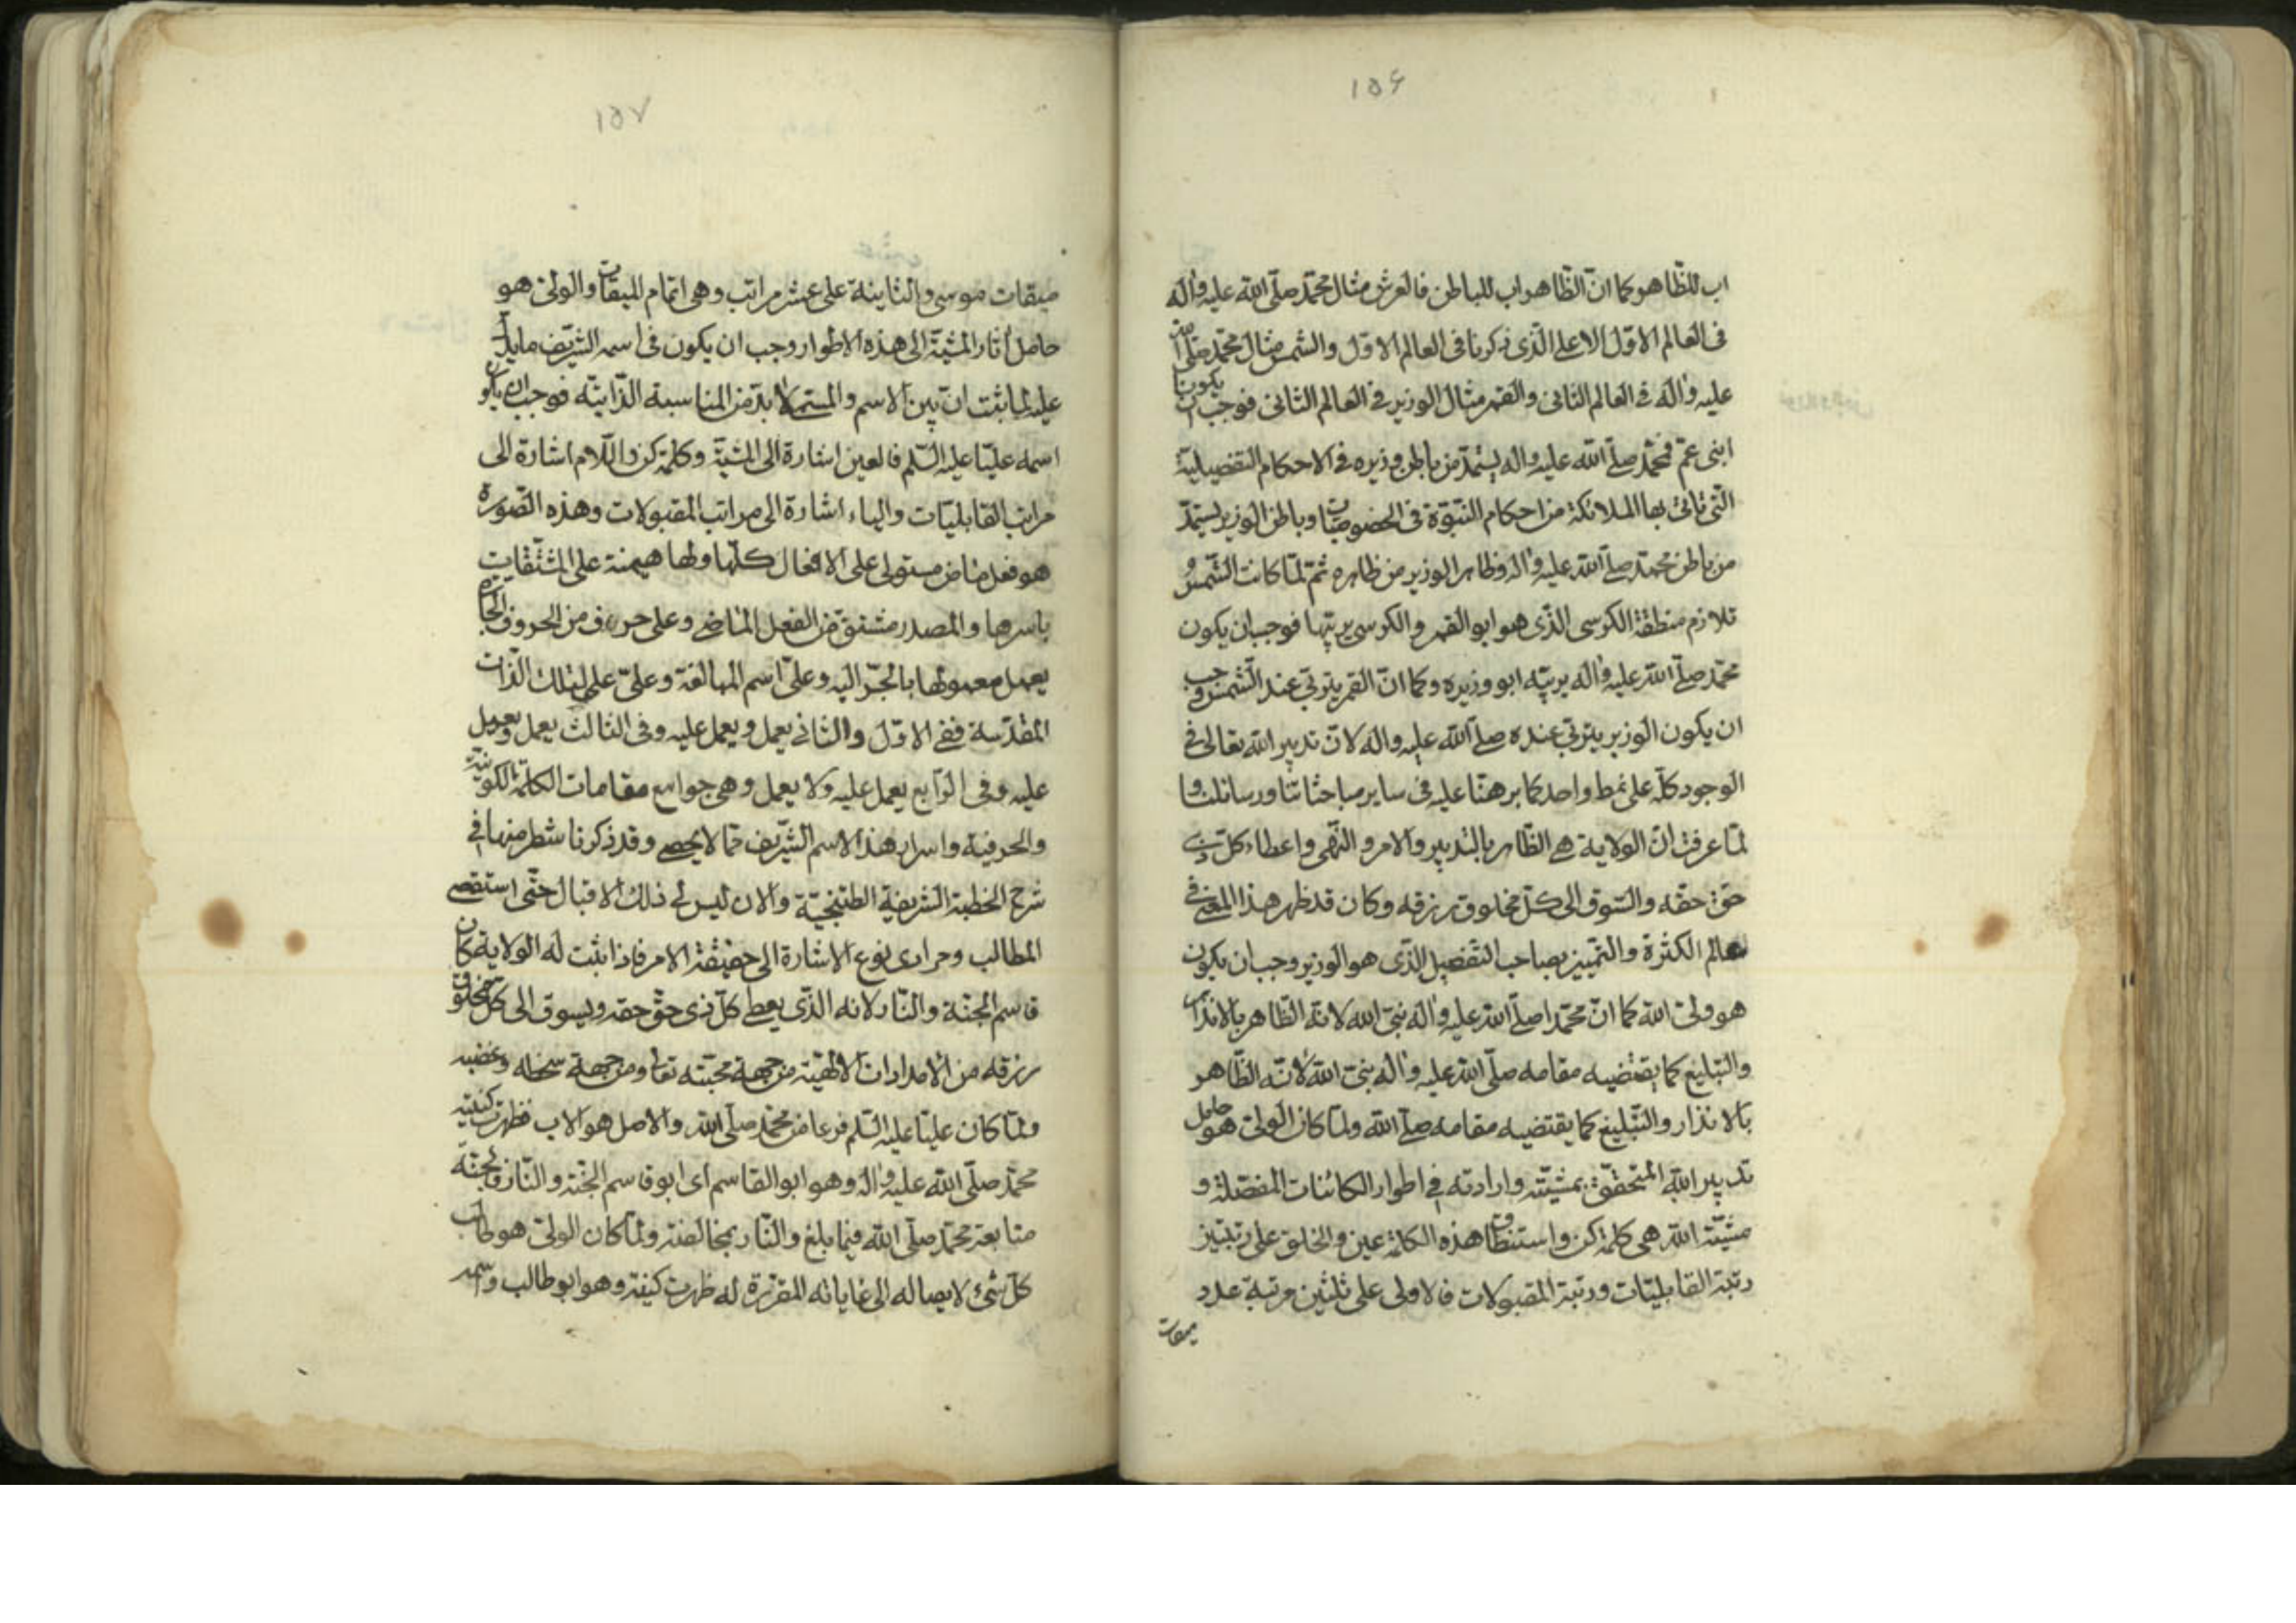 ١٥۶
اب للظّاهر كما انّ الظّاهر اب للباطن فالعرش مثال محمّد صلّى اللّه عليه واله
فى العالم الاوّل الاعلى الّذى ذكرنا فى العالم الاوّل والشمس مثال محمّد صلّى اللّه
عليه واله فى العالم الثانى والقمر مثال الوزير فى العالم الثانى فوجب ان يكونا
ابنى عمّ فمحمّد صلّى اللّه عليه واله يستمدّ من باطن وزيره فى الاحكام التفصيليّة
الّتى تاتى بها الملائكة من احكام النبوّة فى الخصوصيّات وباطن الوزير يستمدّ
من باطن محمّد صلّى اللّه عليه واله وظاهر الوزير من ظاهره ثم لمّا كانت الشّمس
تلازم منطقة الكرسى الّذى هو ابو القمر والكرسى يربّيها فوجب ان يكون
محمّد صلّى اللّه عليه واله يربّيه ابو وزيره وكما انّ القمر يتربّى عند الشّمس وجب
ان يكون الوزير يتربّى عنده صلّى اللّه عليه واله لانّ تدبير اللّه تعالى فى
الوجود كلّه على نمط واحد كما برهنّا عليه فى ساير مباحثاتنا ورسائلنا و
لمّا عرفت انّ الولاية هى الظّاهر بالتدبير والامر والنّهى واعطاء كلّ ذى
حقّ حقّه والسّوق الى كلّ مخلوق رزقه وكان قد ظهر هذا المعنى فى
عالم الكثرة والتميّيز بصاحب التفصيل الّذى هو الوزير وجب ان يكون
هو ولىّ اللّه كما انّ محمّدا صلّى اللّه عليه واله نبىّ اللّه لانّه الظّاهر بالانذار
والتبليغ كما يقتضيه مقامه صلّى اللّه عليه واله نبىّ اللّه لانّه الظّاهر
بالانذار والتّبليغ كما يقتضيه مقامه صلّى اللّه ولمّا كان الولىّ هو حامل
تدبير اللّه المتحقّق بمشيّته وارادته فى اطوار الكائنات المفصّلة و
مشيّة اللّه هى كلمة كن واستنطاق هذه الكلمة عين والخلق على رتبتين
رتبة القابليّات ورتبة المقبولات فالاولى على ثلثين مرتبة عدد
ميقات
١٥٧
ميقات موسى والثانية على عشر مراتب وهى اتمام الميقات والولىّ هو
حامل اثار المشيّة الى هذه الاطوار وجب ان يكون فى اسمه الشريف ما يدلّ
عليه لما ثبت انّ بين الاسم والمسمّى لا بدّ من المناسبة الذّاتيّة فوجب ان يكون
اسمه عليّا عليه السّلم فالعين اشارة الى المشيّة وكلمة كن واللّام اشارة الى
مراتب القابليّات والياء اشارة الى مراتب المقبولات وهذه الصّورة
هو فعل ماض مستولى على الافعال كلّها ولها هيمنة على المشتقّات
باسرها والمصدر مشتق من الفعل الماضى وعلى حرف من الحروف الجارّة
يعمل معمولها بالجرّ اليه وعلىّ اسم المبالغة وعلىّ علم لتلك الذّات
المقدّسة ففى الاوّل والثانى يعمل ويعمل عليه وفى الثالث يعمل ويعمل
عليه وفى الرّابع يعمل عليه ولا يعمل وهى جوامع مقامات الكلمة الكونيّة
والحرفيّة واسرار هذا الاسم الشّريف ممّا لا يحصى وقد ذكرنا شطر منها فى
شرح الخطبة الشريفة الطتنجيّة والان ليس لى ذلك الاقبال حتّى استقصى
المطالب ومرادى نوع الاشارة الى حقيقة الامر فاذا ثبت له الولاية كان
قاسم الجنّة والنّار لانه الّذى يعطى كلّ ذى حقّ حقه ويسوق الى كلّ مخلوق
رزقه من الامدادات الالهيّة من جهة محبّته تعالى ومن جهة سخطه وغضبه
ولمّا كان عليّا عليه السّلم فرعا من محمّد صلّى اللّه والاصل هو الاب فظهرت كنيته
محمّد صلّى اللّه عليه واله وهو ابو القاسم اى ابو قاسم الجنّة والنّار فالجنّة
متابعة محمّد صلّى اللّه فيما بلغ والنّار بمخالفته ولمّا كان الولىّ هو طالب
كلّ شىء لايصاله الى غاياته المقرّرة له ظهرت كنيته وهو ابو طالب واسمه